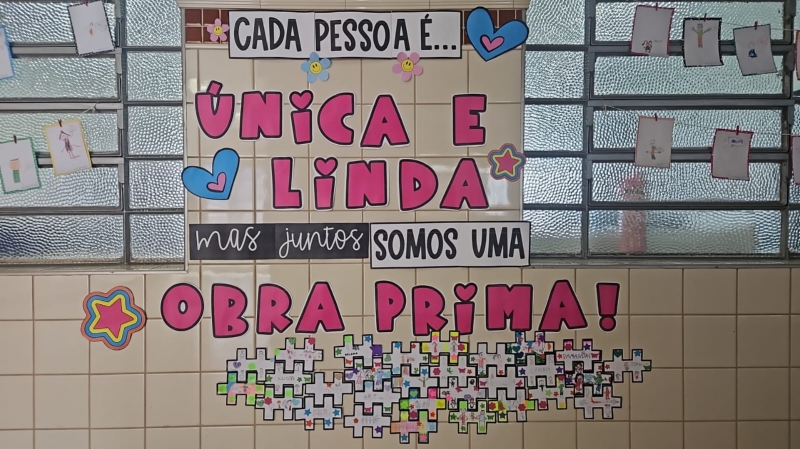 CADA PESSOA É...
ÚNICA E
LINDA
mas juntos SOMOS UMA
OBRA PRIMA!